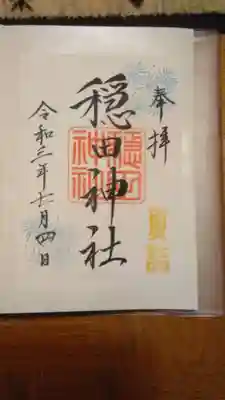 奉拝
穏田神社
穏田神社
令和三年十一月四日